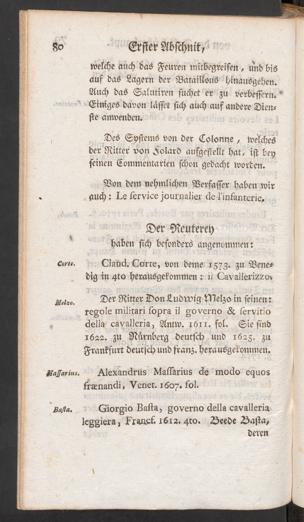 80 Erster Abschnitt,
welche auch das Feuren mitbegreifen, und bis
auf das Lagern der Bataillons hinausgehen.
Auch das Salutiren suchet er zu verbessern.
Einiges davon lässet sich auch auf andere Dien-
ste anwenden.
Des Systems von der Colonne, welches
der Ritter von Folard aufgestellt hat, ist bey
seinen Commentarien schon gedacht worden.
Von dem nehmlichen Verfasser haben wir
auch: Le service journalier de l'infanterie.
Der Reuterey
haben sich besonders angenommen:
Corte. Claud. Corte, von deme 1573. zu Vene-
dig in 4to herausgekommen: il Cavalerizzo.
Melzo. Der Ritter Don Ludwig Melzo in seinen:
regole militari sopra il governo & servitio
della cavalleria, Antw. 1611. fol. Sie sind
1622. zu Nürnberg deutsch und 1625. zu
Frankfurt deutsch und franz. herausgekommen.
Massarius. Alexandrus Massarius de modo equos
frænandi, Venet. 1607. fol.
Basta. Giorgio Basta, governo della cavalleria
leggiera, Francf. 1612. 4to. Beede Basta,
deren